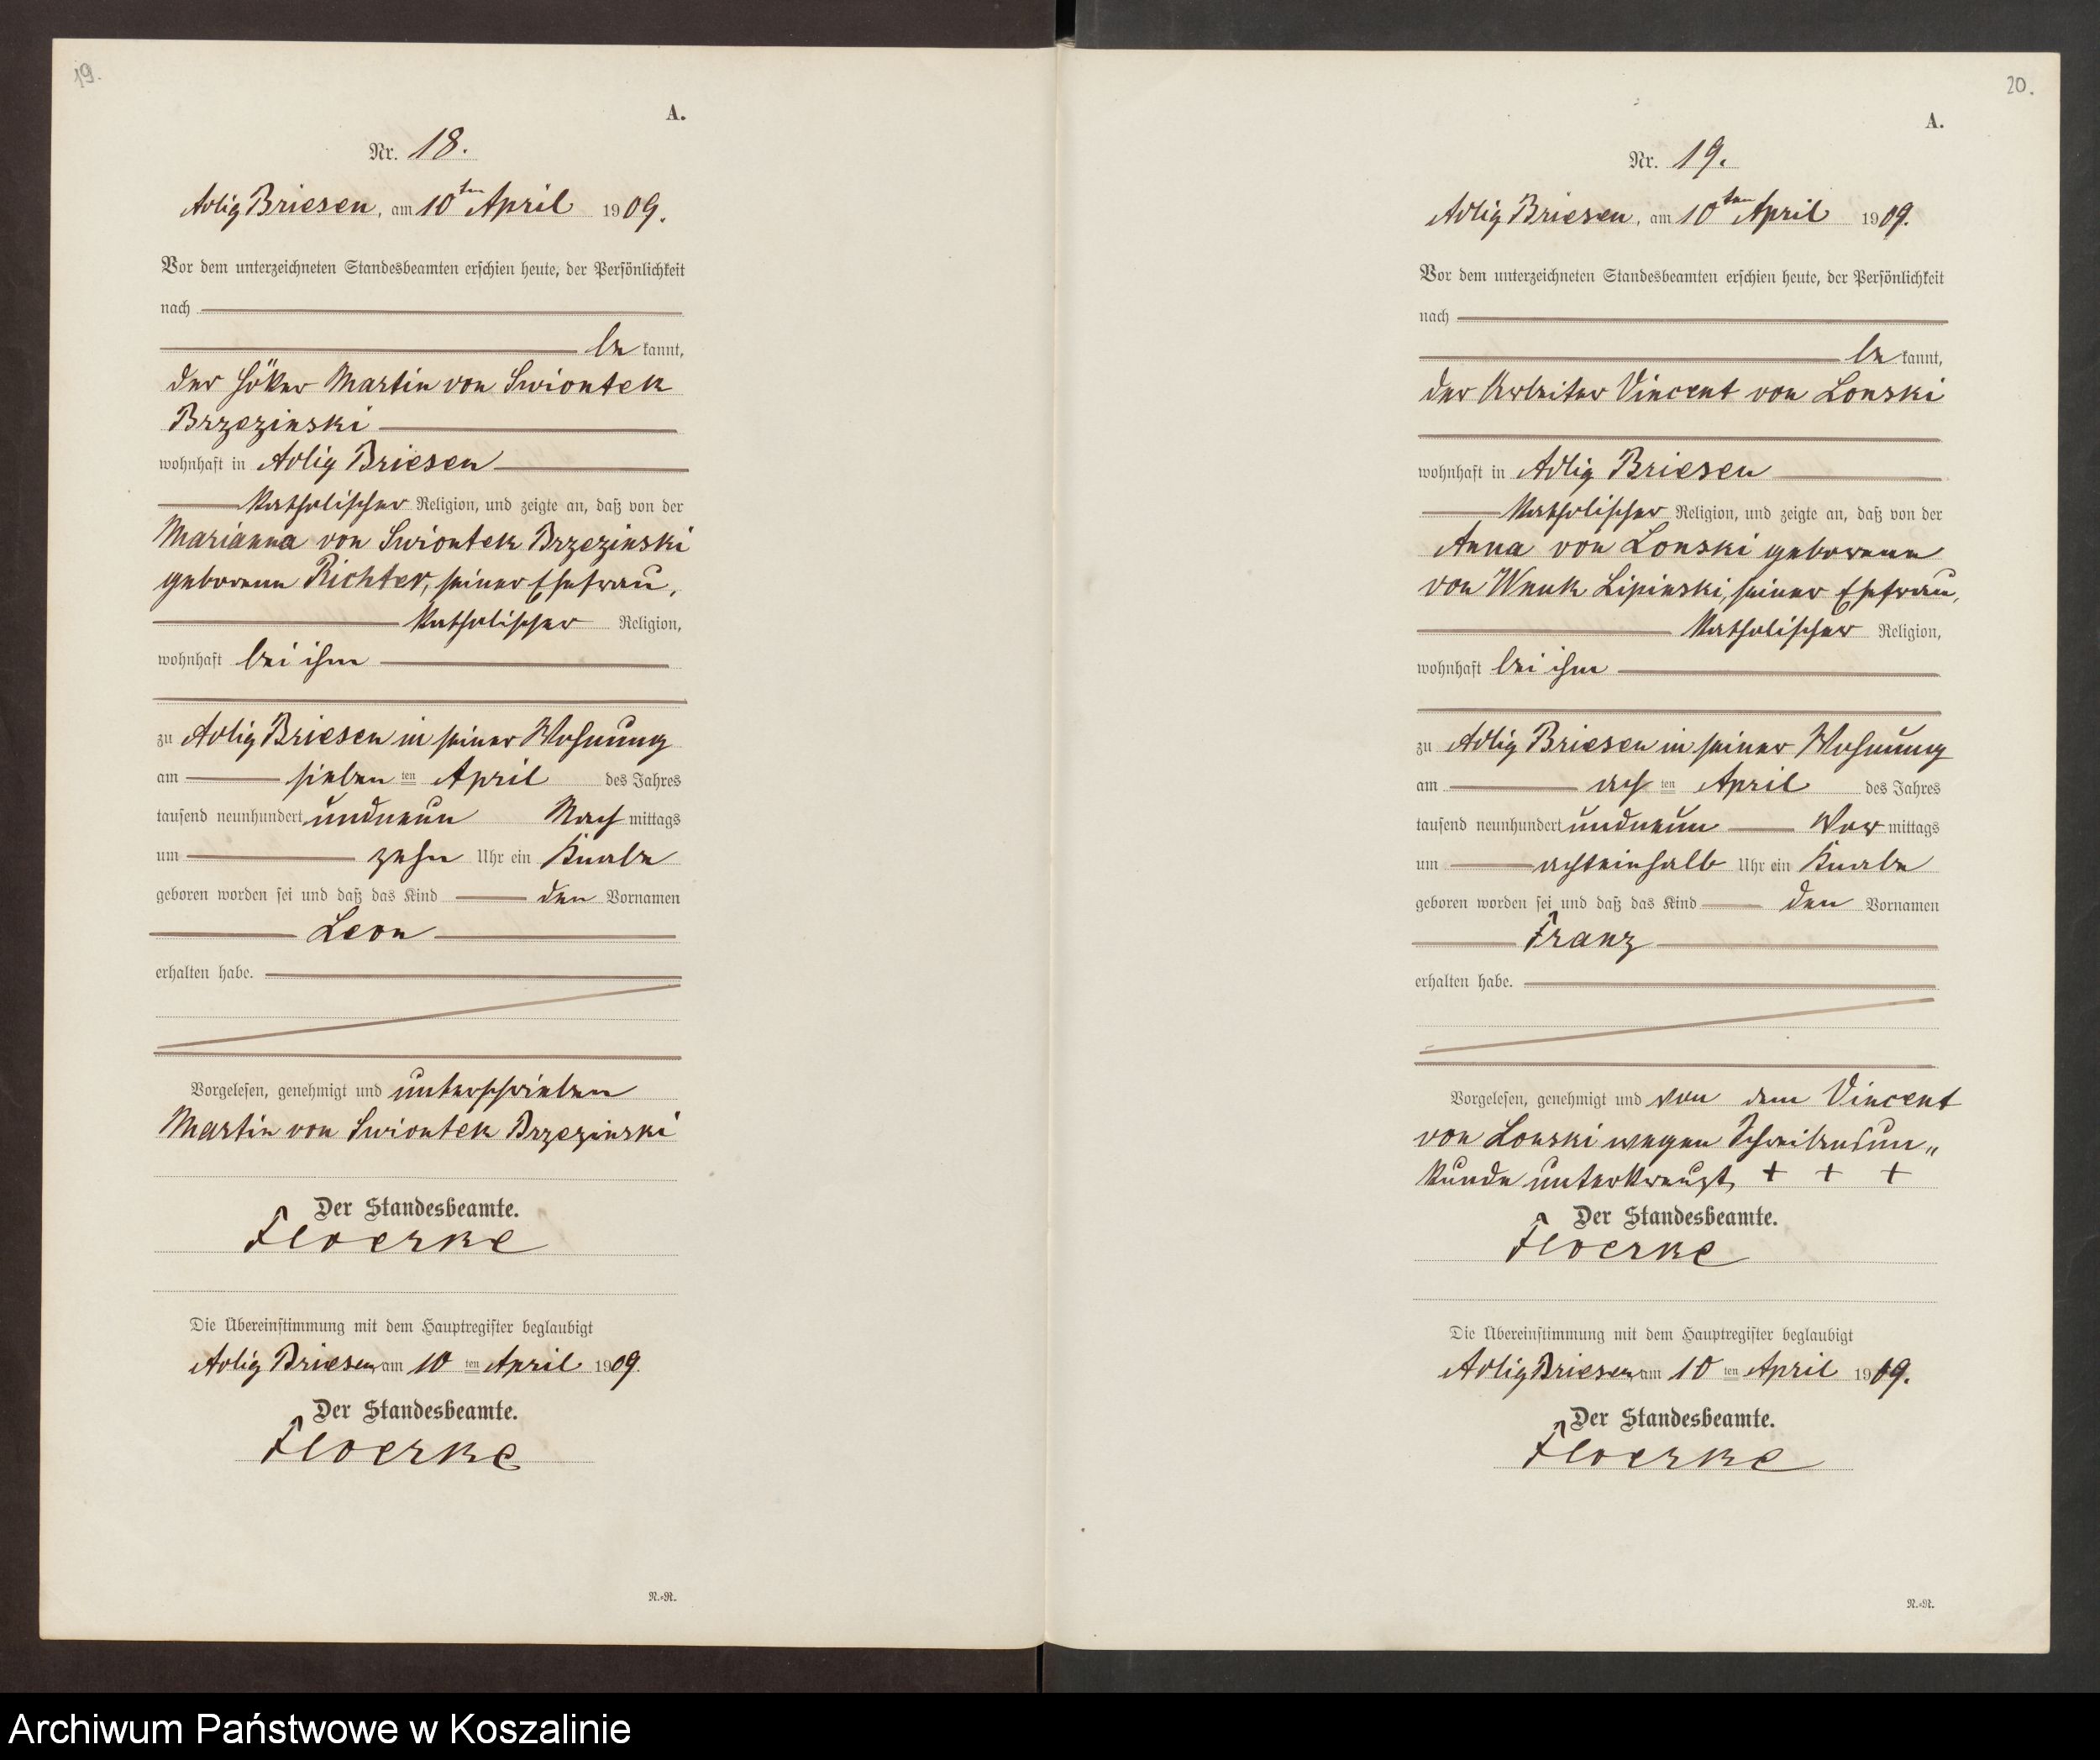 19.
A.
Nr. 18.
Adlig Briesen, am 10ten April 1909.
Vor dem unterzeichneten Standesbeamten erschien heute, der Persönlichkeit
nach
be kannt,
der Höker Martin von Swiontek
Brzezinski
wohnhaft in Adlig Briesen
katholischer Religion, und zeigte an, daß von der
Marianna von Swiontek Brzezinski
geborene Richter, seiner Ehefrau,
katholischer Religion,
wohnhaft bei ihm
zu Adlig Briesen in seiner Wohnung
am sieben ten April des Jahres
tausend neunhundert undneun Nach mittags
um zehn Uhr ein Knabe
geboren worden sei und daß das Kind den Vornamen
Leon
erhalten habe.
Vorgelesen, genehmigt und unterschrieben
Martin von Swiontek Brzezinski
Der Standesbeamte.
Floerke
Die Übereinstimmung mit dem Hauptregister beglaubigt
Adlig Briesen, am 10 ten April 1909.
Der Standesbeamte.
Floerke
N.=R.
20.
A.
Nr. 19.
Adlig Briesen, am 10ten April 1909.
Vor dem unterzeichneten Standesbeamten erschien heute, der Persönlichkeit
nach
be kannt,
der Arbeiter Vincent von Lonski
wohnhaft in Adlig Briesen
katholischer Religion, und zeigte an, daß von der
Anna von Lonski geborene
von Wnuk Lipinski, seiner Ehefrau,
katholischer Religion,
wohnhaft bei ihm
zu Adlig Briesen in seiner Wohnung
am ach ten April des Jahres
tausend neunhundert undneun Vor mittags
um achteinhalb Uhr ein Knabe
geboren worden sei und daß das Kind den Vornamen
Franz
erhalten habe.
Vorgelesen, genehmigt und von dem Vincent
von Lonski wegen Schreibensun„
kunde unterkreuzt, + + +
Der Standesbeamte.
Floerke
Die Übereinstimmung mit dem Hauptregister beglaubigt
Adlig Briesen, am 10 ten April 1909.
Der Standesbeamte.
Floerke
N.=R.
Archiwum Państwowe w Koszalinie